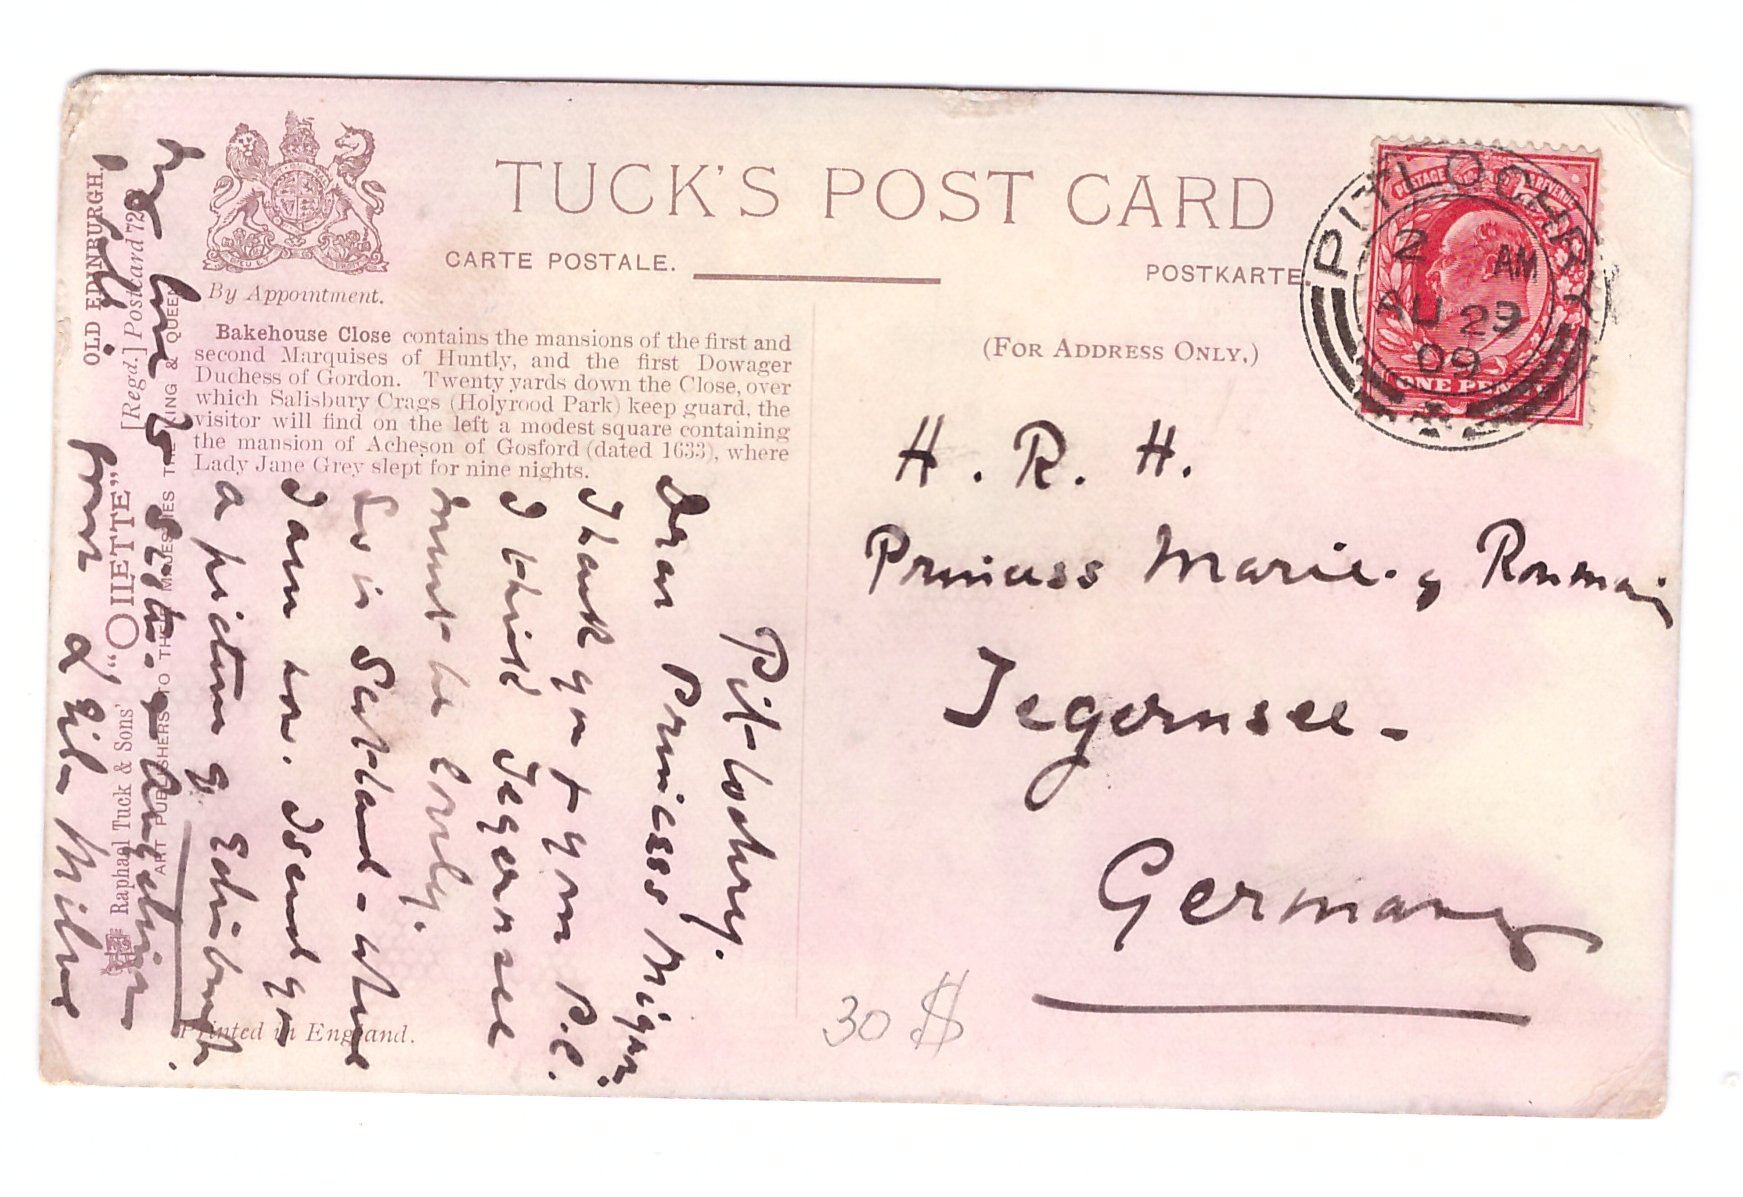 TUCK'S POST CARD
CARTE POSTALE.
POSTKARTE
By Appointment.
(FOR ADDRESS ONLY.)
Bakehouse Close contains the mansions of the first and
second Marquises of Huntly, and the first Dowager
Duchess of Gordon. Twenty yards down the Close, over
which Salisbury Crags (Holyrood Park) keep guard, the
visitor will find on the left a modest square containing
the mansion of Acheson of Gosford (dated 1633), where
Lady Jane Grey slept for nine nights.
PITLOCHRY
2 AM
AU 29
09
ONE PENNY
H. R. H.
Princess Marie of Roumania
Tegernsee -
Germany
30 $
Pitlochry.
Dear Princess Mignon.
Thank you for your P.C.
I think Tegernsee
must be lovely.
So is Scotland - where
I am now. I send you
a picture of Edinburgh.
My love to
from
Milne
OLD EDINBURGH.
[Regd.] Postcard 72
Raphael Tuck & Sons' "OILETTE"
ART PUBLISHERS TO THEIR MAJESTIES THE KING & QUEEN
Printed in England.